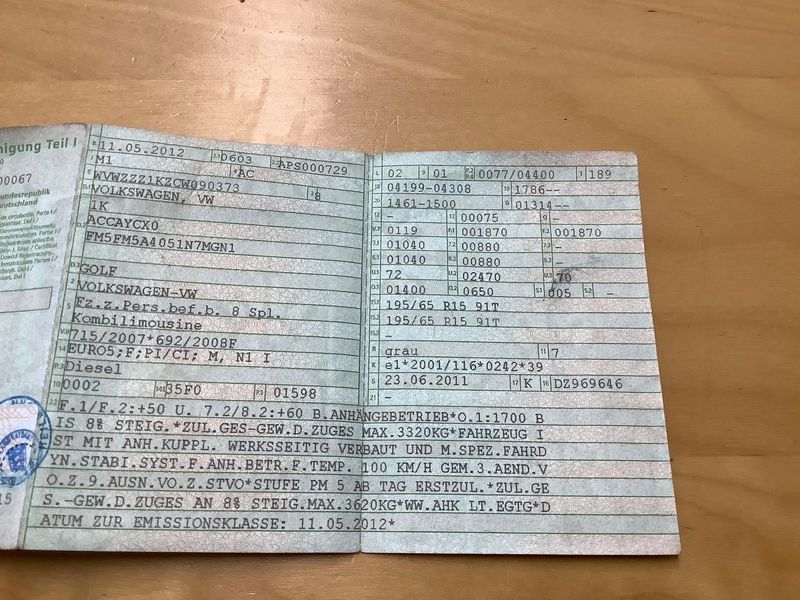 igung Teil I
00067
undesrepublik
eutschland
B 11.05.2012 2.1 0603 2.2 APS000729
J M1 4 AC
E WVWZZZ1KZCW090373 3 8
D.1 VOLKSWAGEN, VW
1K
ACCAYCX0
FM5FM5A4051N7MGN1
D.3 GOLF
2 VOLKSWAGEN-VW
5 Fz.z.Pers.bef.b. 8 Spl.
Kombilimousine
V.9 715/2007*692/2008F
14 EURO5;F;PI/CI; M, N1 I
P.3 Diesel
10 0002 14.1 35F0 P.1 01598
L 02 9 01 P.2 P.4 0077/04400 T 189
18 04199-04308 19 1786--
20 1461-1500 G 01314--
12 - 13 00075 Q -
V.7 0119 F.1 001870 F.2 001870
7.1 01040 7.2 00880 7.3 -
8.1 01040 8.2 00880 8.3 -
U.1 72 U.2 02470 U.3 70
O.1 01400 O.2 0650 S.1 005 S.2 -
15.1 195/65 R15 91T
15.2 195/65 R15 91T
15.3 -
R grau 11 7
K e1*2001/116*0242*39
6 23.06.2011 17 K 16 DZ969646
21 -
22 F.1/F.2:+50 U. 7.2/8.2:+60 B.ANHÄNGEBETRIEB*O.1:1700 B
IS 8% STEIG.*ZUL.GES-GEW.D.ZUGES MAX.3320KG*FAHRZEUG I
ST MIT ANH.KUPPL. WERKSSEITIG VERBAUT UND M.SPEZ.FAHRD
YN.STABI.SYST.F.ANH.BETR.F.TEMP. 100 KM/H GEM.3.AEND.V
O.Z.9.AUSN.VO.Z.STVO*STUFE PM 5 AB TAG ERSTZUL.*ZUL.GE
S.-GEW.D.ZUGES AN 8% STEIG.MAX.3620KG*WW.AHK LT.EGTG*D
ATUM ZUR EMISSIONSKLASSE: 11.05.2012*
15